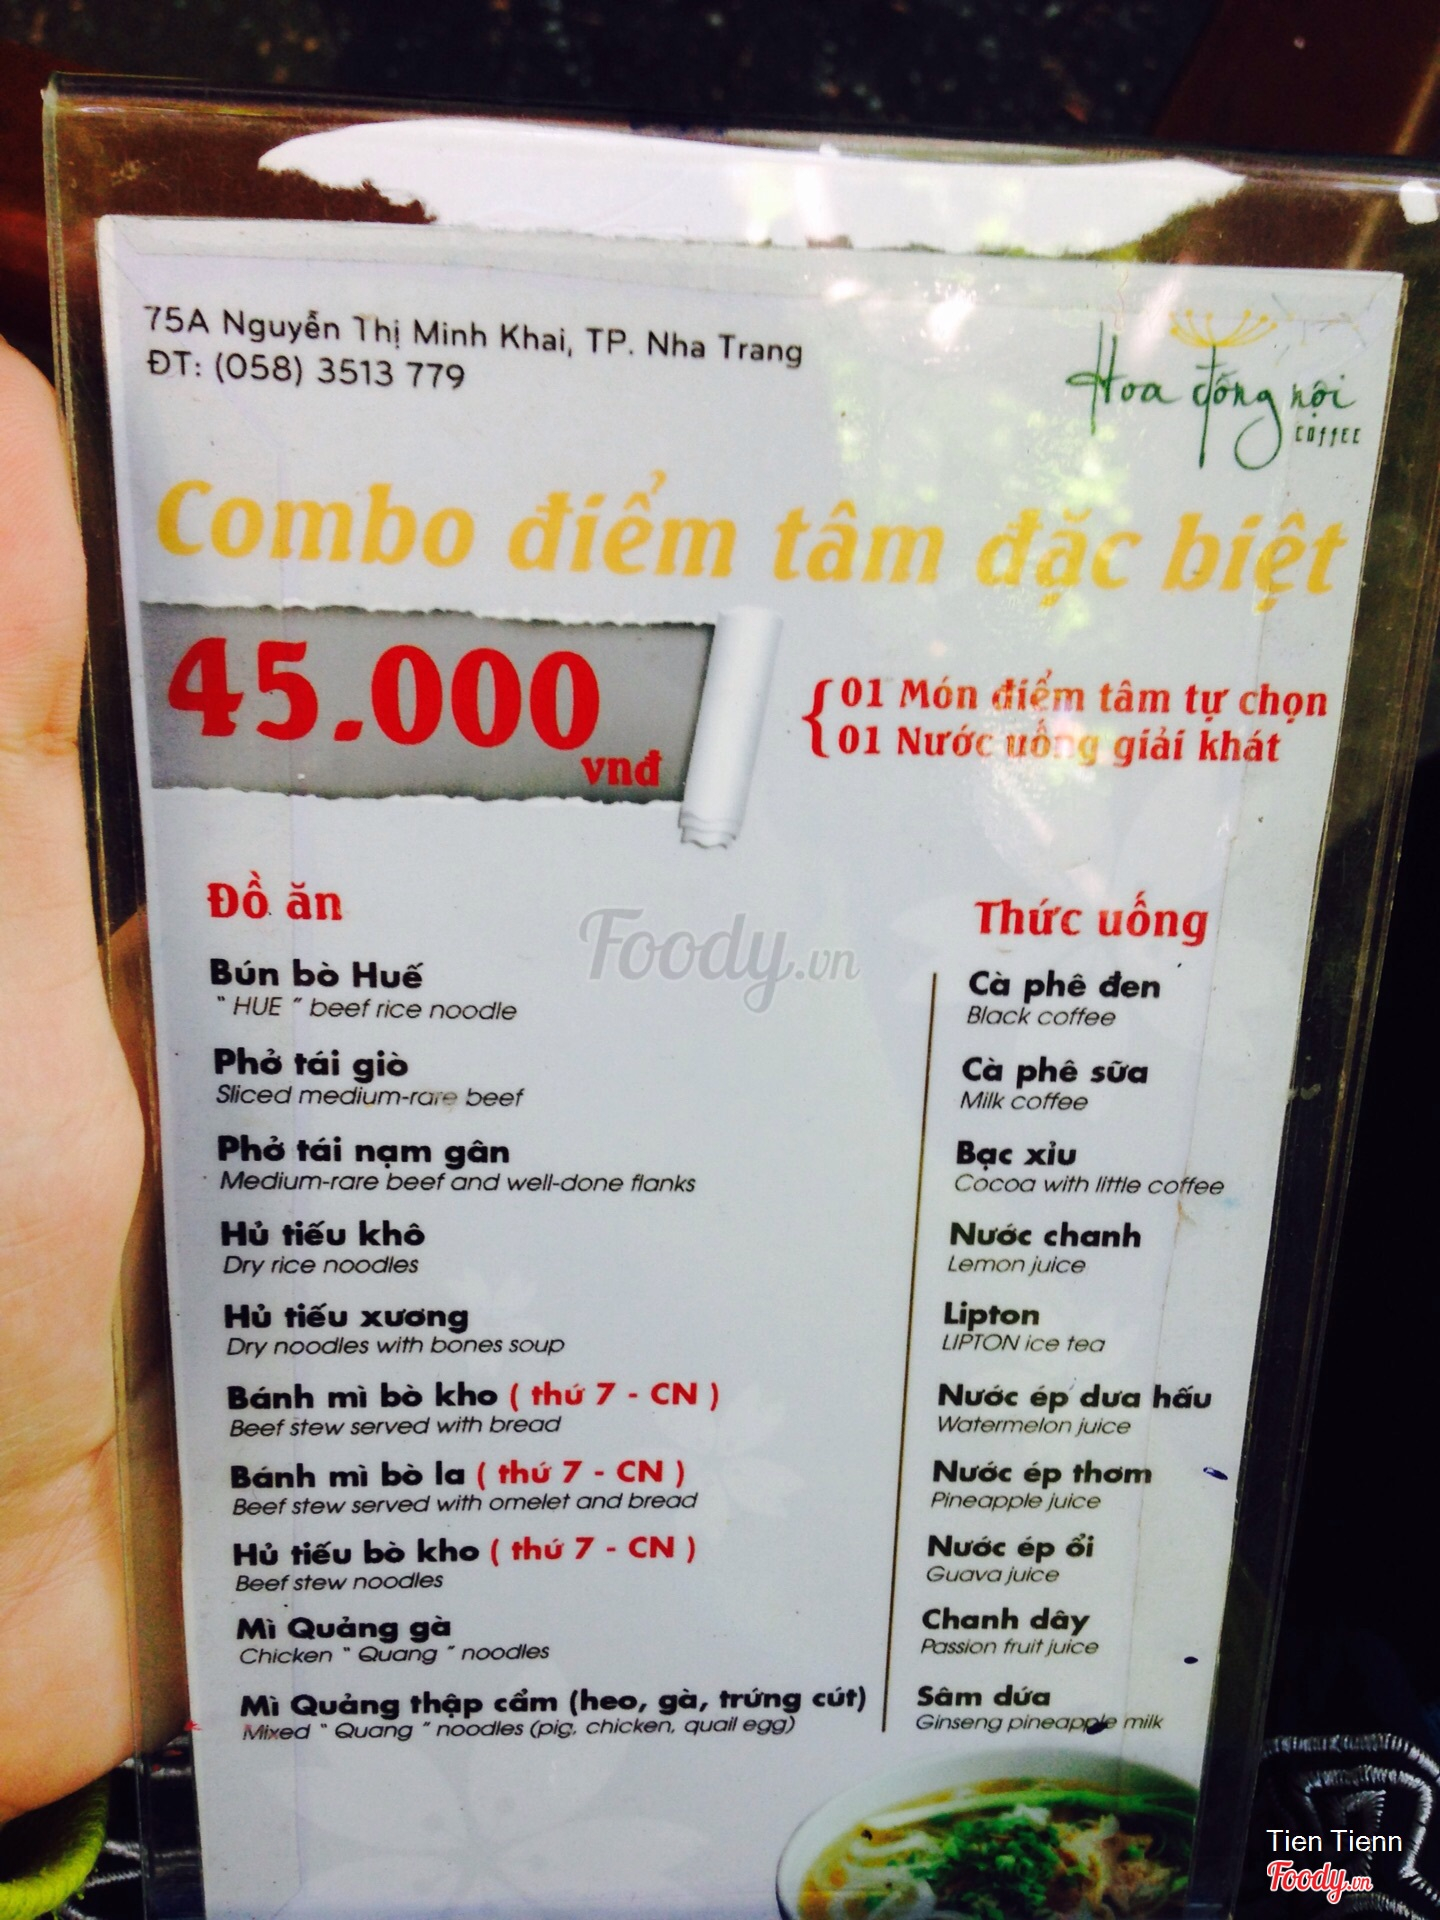 75A Nguyễn Thị Minh Khai, TP. Nha Trang
ĐT: (058) 3513 779
Hoa đồng nội
COFFEE
Combo điểm tâm đặc biệt
45.000
vnđ
01 Món điểm tâm tự chọn
01 Nước uống giải khát
Đồ ăn
Bún bò Huế
" HUE " beef rice noodle
Phở tái giò
Sliced medium-rare beef
Phở tái nạm gân
Medium-rare beef and well-done flanks
Hủ tiếu khô
Dry rice noodles
Hủ tiếu xương
Dry noodles with bones soup
Bánh mì bò kho ( thứ 7 - CN )
Beef stew served with bread
Bánh mì bò la ( thứ 7 - CN )
Beef stew served with omelet and bread
Hủ tiếu bò kho ( thứ 7 - CN )
Beef stew noodles
Mì Quảng gà
Chicken " Quang " noodles
Mì Quảng thập cẩm (heo, gà, trứng cút)
Mixed " Quang " noodles (pig, chicken, quail egg)
Thức uống
Cà phê đen
Black coffee
Cà phê sữa
Milk coffee
Bạc xỉu
Cocoa with little coffee
Nước chanh
Lemon juice
Lipton
LIPTON ice tea
Nước ép dưa hấu
Watermelon juice
Nước ép thơm
Pineapple juice
Nước ép ổi
Guava juice
Chanh dây
Passion fruit juice
Sâm dứa
Ginseng pineapple milk
Foody.vn
Tien Tienn
Foody.vn